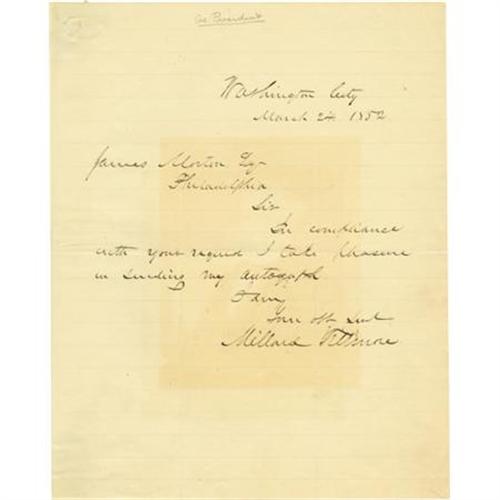 as President
Washington City
March 24. 1852
James Morton Esq
Philadelphia
Sir
In compliance
with your request I take pleasure
in sending my autograph
I am
Your obt Servt
Millard Fillmore